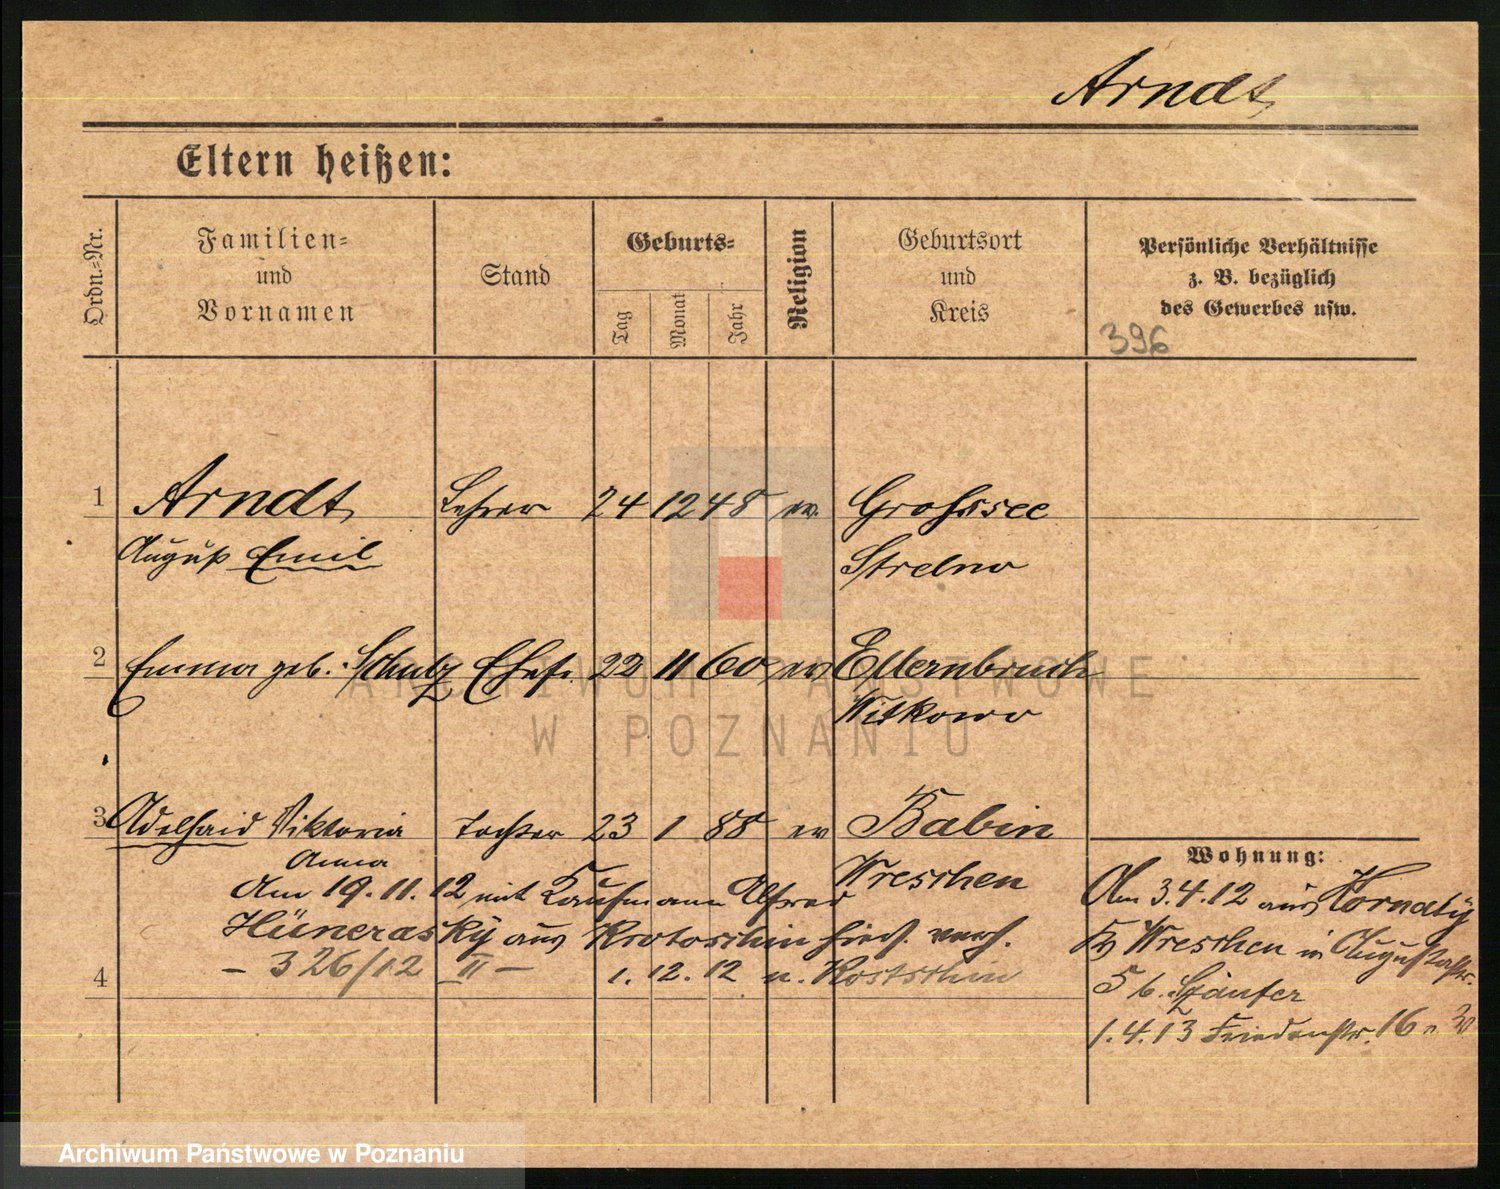 Arndt
Eltern heißen:
Ordn.=Nr.
Familien=
und
Vornamen
Stand
Geburts=
Tag
Monat
Jahr
Religion
Geburtsort
und
Kreis
Persönliche Verhältnisse
z. B. bezüglich
des Gewerbes usw.
396
1 Arndt Lehrer 24 12 48 ev. Grossee
August Emil Strelno
2 Emma geb. Schulz Ehefr. 22 11 60 ev Ellernbruch
Witkowo
3 Adelheid Viktoria Tochter 23 1 88 ev Babin
Anna Wreschen
Am 19.11.12 mit Kaufmann Alfred
Hünerasky aus Krotoschin hier verh.
4 – 326/12 II – 1.12.12 n. Kostschin
Wohnung:
Am 3.4.12 aus
Wreschen in Augustastr.
5 b.
1.4.13 Friedenstr. 16
ARCHIWUM PAŃSTWOWE
W POZNANIU
Archiwum Państwowe w Poznaniu